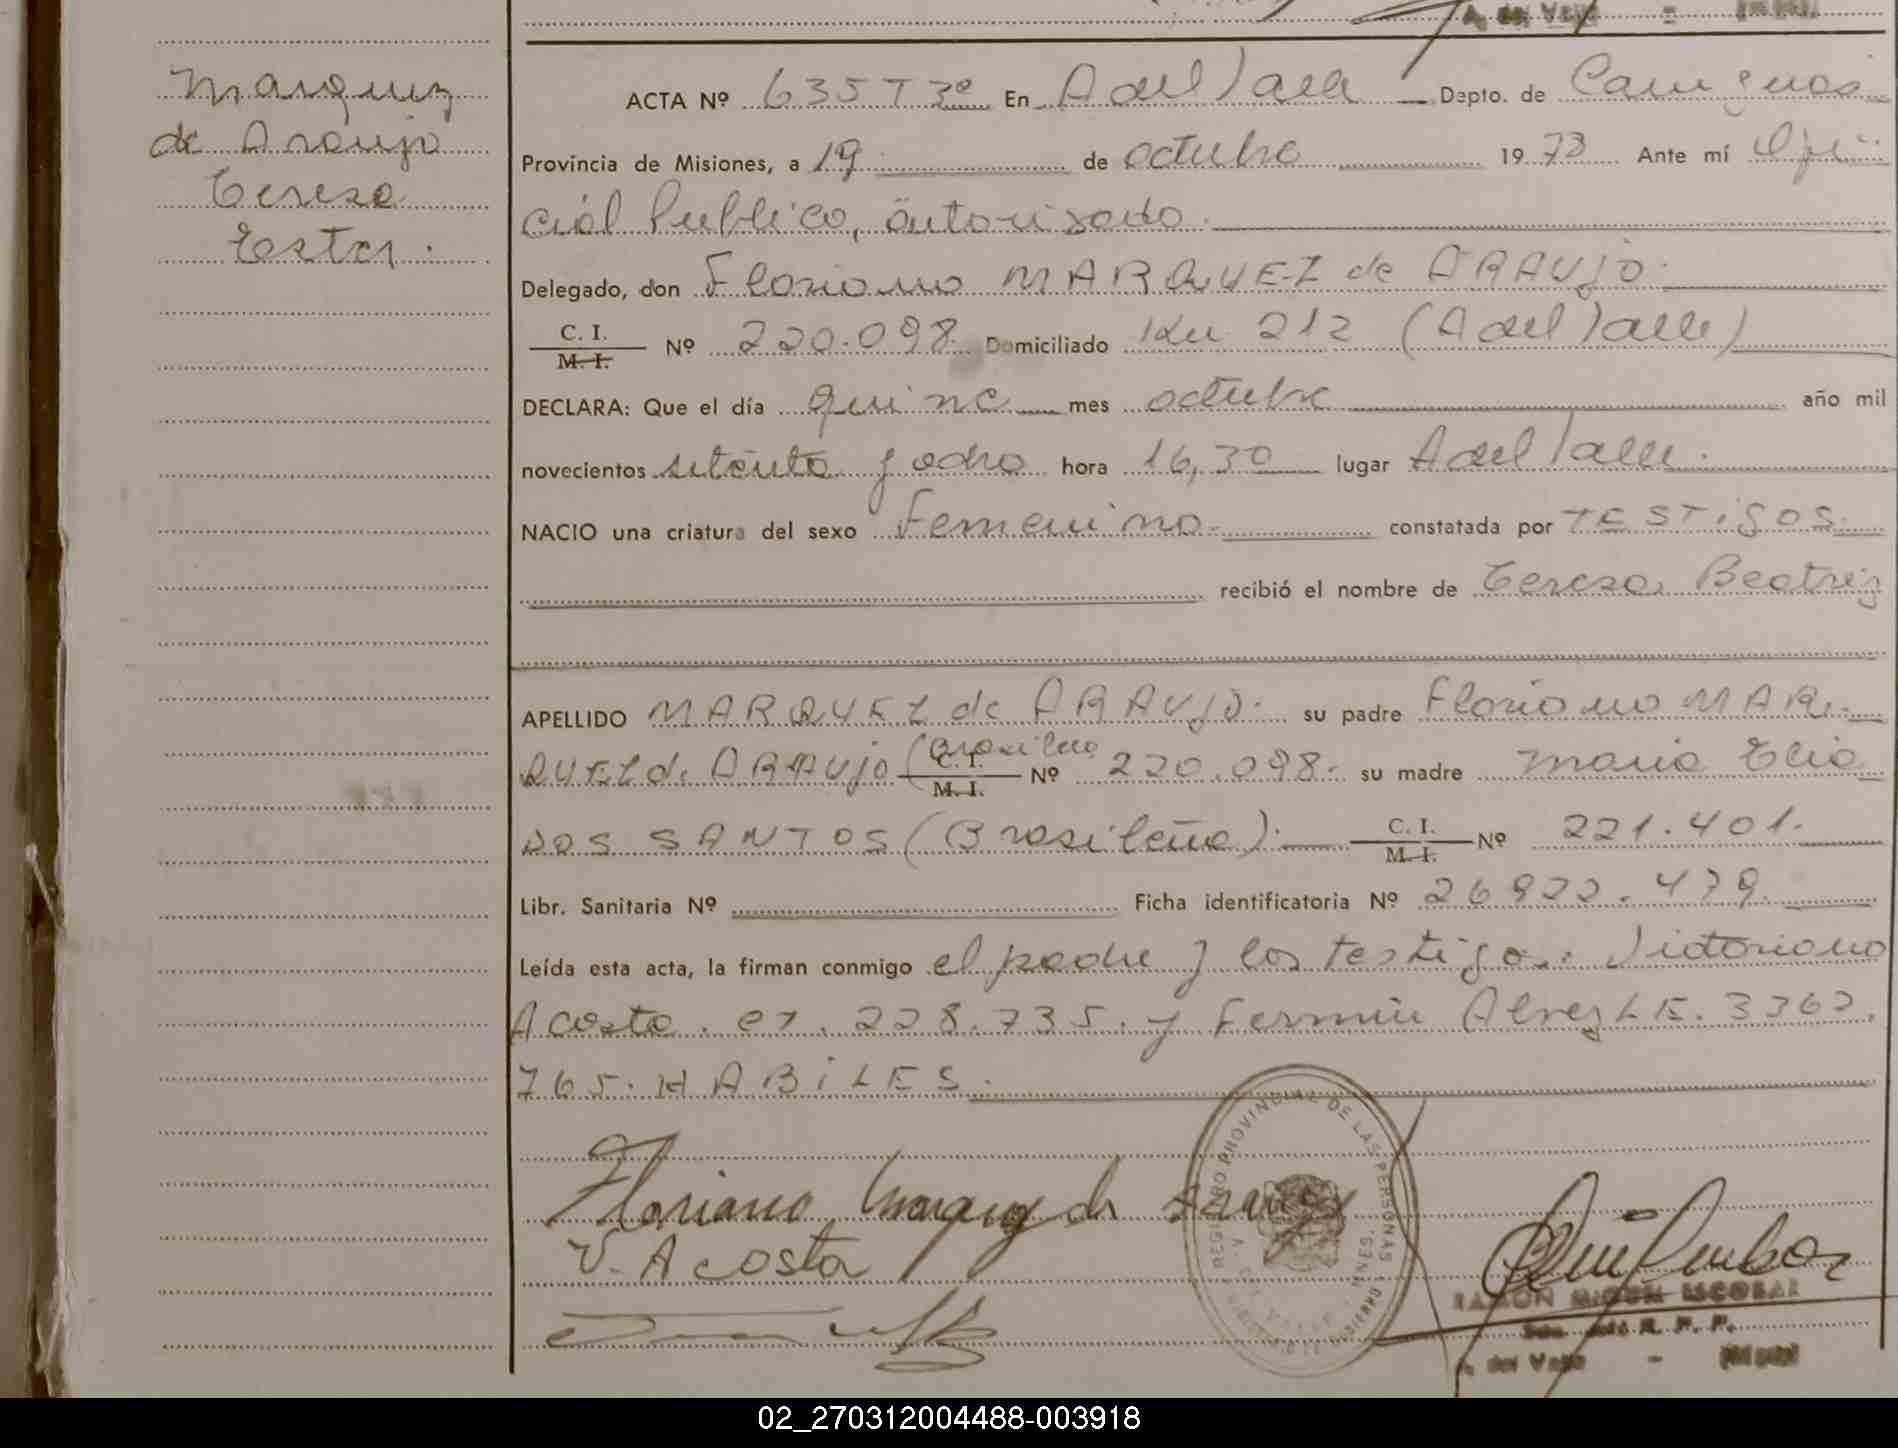 A. del Valle -
Marquez
de Araujo
Teresa
Ester.
ACTA Nº 635 T 3º En A del Valle Dapto. de Cainguas
Provincia de Misiones, a 19 de octubre 1973 Ante mí Ofi-
cial Publico, autorizado.
Delegado, don Floriano MARQUEZ de ARAUJO.
C. I.
M. I. Nº 220.098. Domiciliado Km 212 (A del Valle)
DECLARA: Que el día quince mes octubre año mil
novecientos setenta y ocho hora 16,30 lugar A del Valle.
NACIO una criatura del sexo Femenino. constatada por TESTIGOS.
recibió el nombre de Teresa Beatriz
APELLIDO MARQUEZ de ARAUJO. su padre Floriano MAR-
QUEZ de ARAUJO (Brasileño C. I.
M. I. Nº 220.098. su madre Maria Elia
DOS SANTOS (Brasileña). C. I.
M. I. Nº 221.401.
Libr. Sanitaria Nº Ficha identificatoria Nº 26922.479.
Leída esta acta, la firman conmigo el padre y los testigos. Victoriano
Acosta. 228.735. y Fermin Alvez L E. 3362.
765. HABILES.
Floriano Marquez de Araujo
V. Acosta
REGISTRO PROVINCIAL DE LAS PERSONAS
RAMON MIGUEL ESCOBAR
R. P. P.
A. del Valle -
02_270312004488-003918